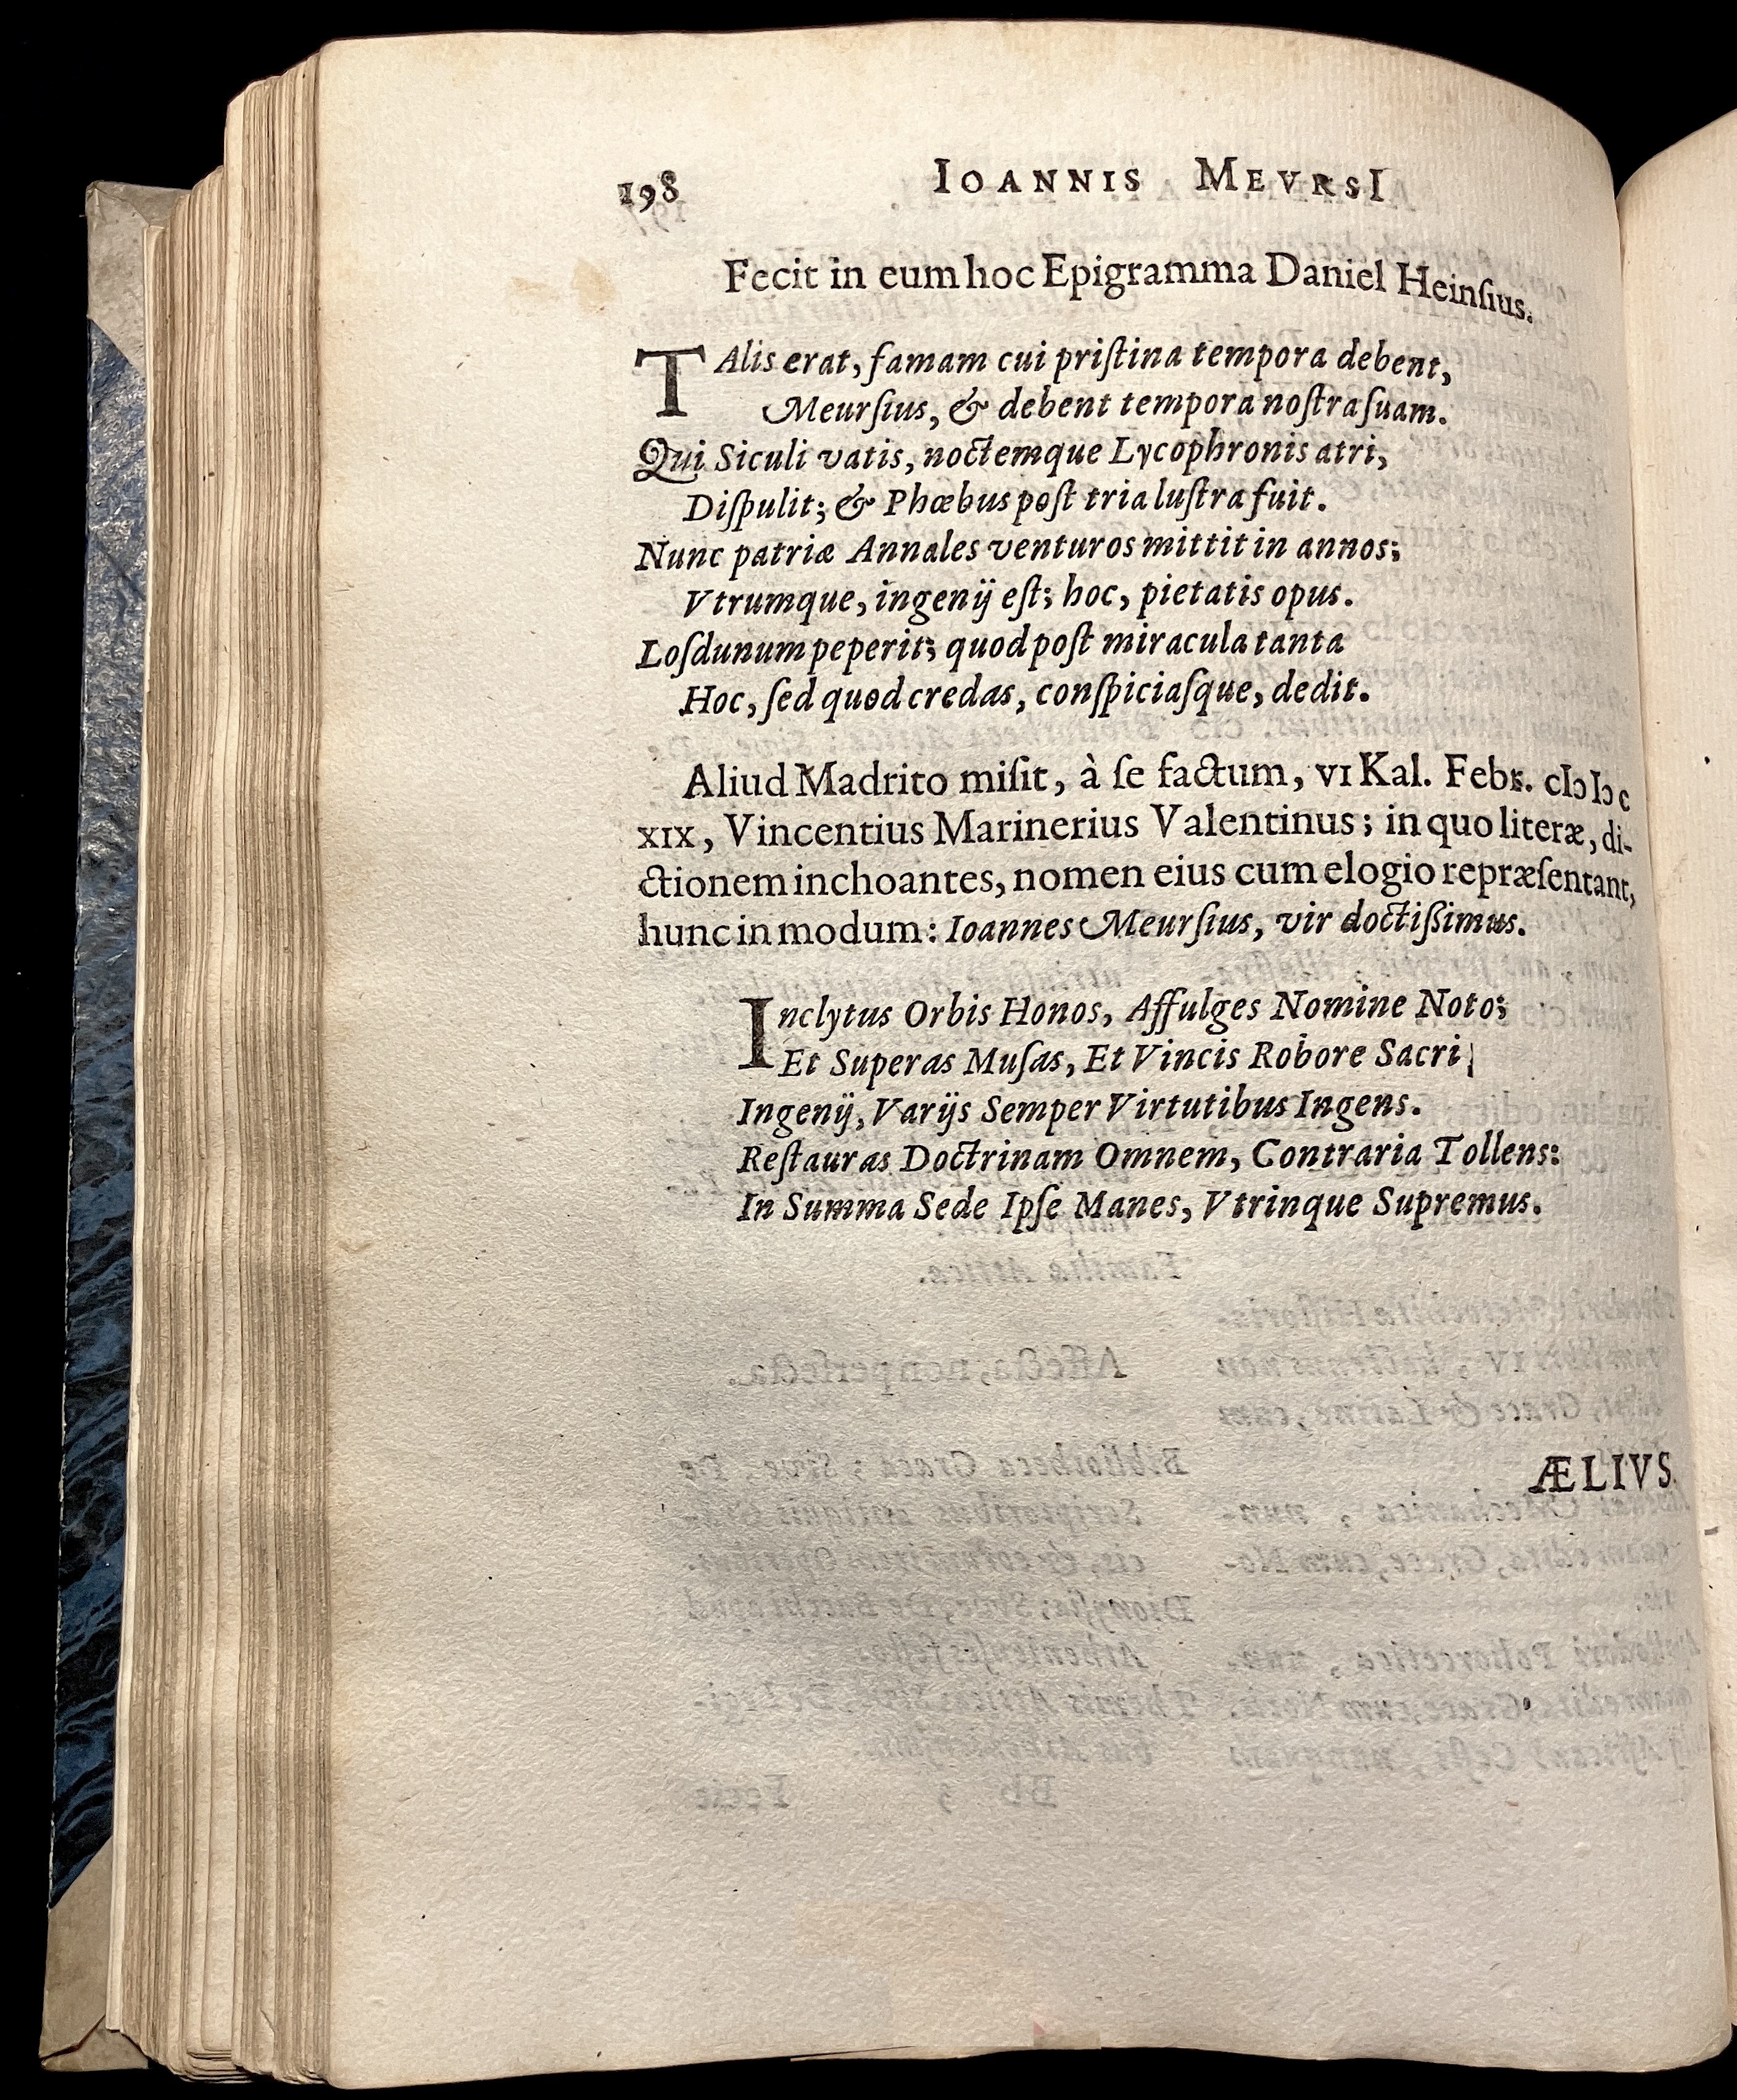 198 IOANNIS MEVRSI
Fecit in eum hoc Epigramma Daniel Heinſius.
TAlis erat, famam cui priſtina tempora debent,
Meurſius, & debent tempora noſtra ſuam.
Qui Siculi vatis, noctemque Lycophronis atri,
Diſpulit; & Phœbus poſt tria luſtra fuit.
Nunc patriæ Annales venturos mittit in annos;
Vtrumque, ingenij eſt; hoc, pietatis opus.
Loſdunum peperit; quod poſt miracula tanta
Hoc, ſed quod credas, conſpiciaſque, dedit.
Aliud Madrito miſit, à ſe factum, VI Kal. Febr. cIↄ Iↄ c
XIX, Vincentius Marinerius Valentinus; in quo literæ, di-
ctionem inchoantes, nomen eius cum elogio repræſentant,
hunc in modum: Ioannes Meurſius, vir doctiſsimus.
Inclytus Orbis Honos, Affulges Nomine Noto;
Et Superas Muſas, Et Vincis Robore Sacri
Ingenij, Varijs Semper Virtutibus Ingens.
Reſtauras Doctrinam Omnem, Contraria Tollens:
In Summa Sede Ipſe Manes, Vtrinque Supremus.
ÆLIVS